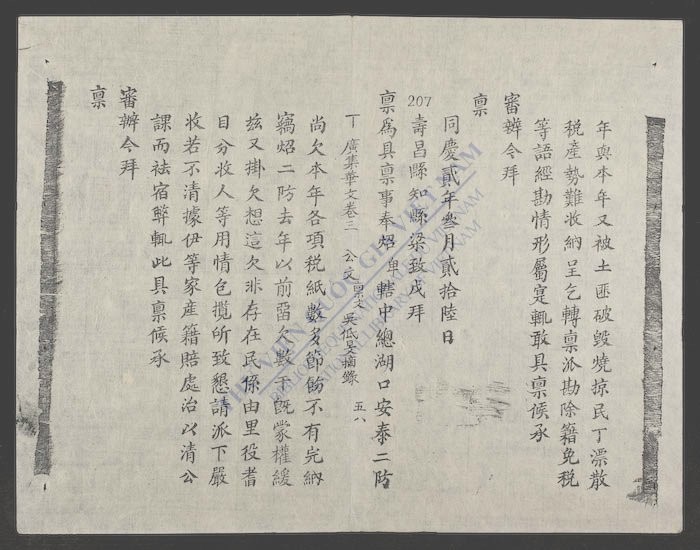 年與本年又被土匪破毀燒掠民丁漂散
稅產勢難收納呈乞轉稟派勘除籍免稅
等語經勘情形屬寔輒敢具稟候承
審辦今拜
稟
同慶貳年叁月貳拾陸日
207
壽昌縣知縣梁致戊拜
稟爲具稟事奉炤卑轄中總湖口安泰二防
丁廣集華文卷三 公文稟文 吳低旻摘錄 五八
尚欠本年各項稅紙數多節飭不有完納
竊炤二防去年以前留欠數干既蒙權緩
茲又掛欠想這欠非存在民係由里役耆
目分收人等用情包攬所致懇請派下嚴
收若不清據伊等家產籍賠處治以清公
課而祛宿弊輒此具稟候承
審辦今拜
稟
THƯ VIỆN QUỐC GIA VIỆT NAM
NATIONAL LIBRARY OF VIETNAM